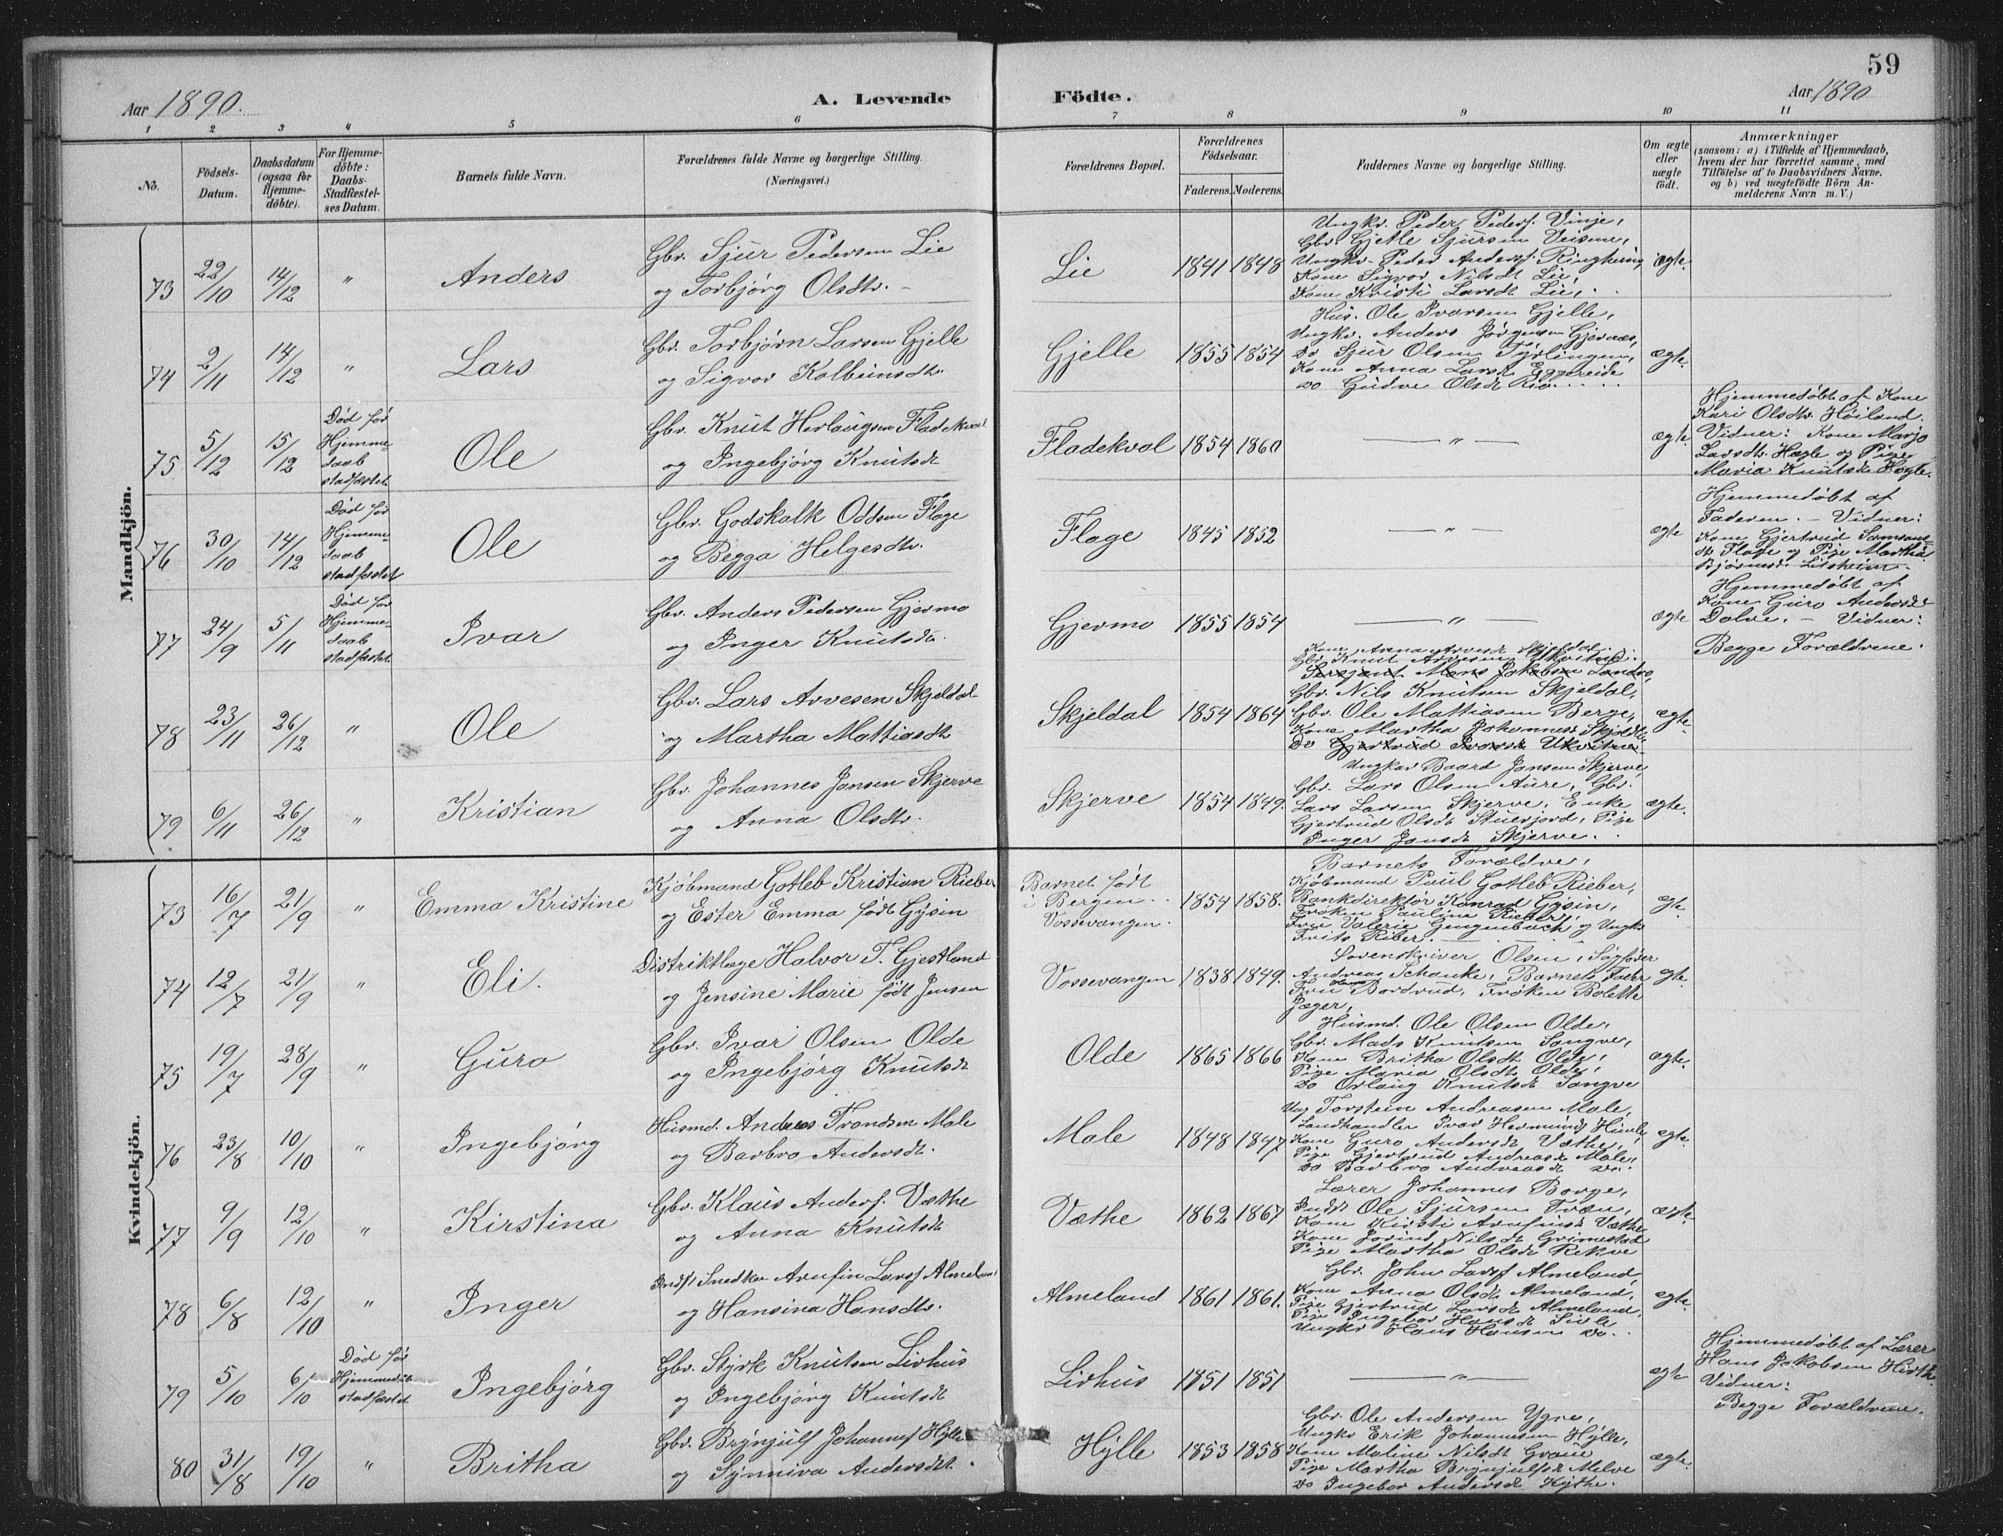 59
Aar 1890.
A. Levende
Födte.
Aar 1890
1 2 3 4 5 6 7 8 9 10 11
No.
Födsels-Datum.
Daabsdatum (ogsaa for Hjemme-döbte).
For Hjemme-döbte: Daabs-Stadfæstel-ses Datum.
Barnets fulde Navn.
Forældrenes fulde Navne og borgerlige Stilling. (Næringsvei.)
Forældrenes Bopæl.
Forældrenes Födselsaar.
Faderens. Moderens.
Faddernes Navne og borgerlige Stilling.
Om ægte eller uægte födt.
Anmærkninger
(saasom: a) i Tilfælde af Hjemmedaab, hvem der har forrettet samme, med Tilföielse af to Daabsvidners Navne, og b) ved uægtefödte Börn An-melderens Navn m. V.)
Mandkjön.
73 22/10 14/12 " Anders
Gbr. Sjur Pedersen Lie
og Torbjörg Olsdtr.
Lie 1841 1848
Ungkr. Peder Pedersf. Vinje,
Gbr. Gjetle Sjursen Veisene,
Ungkr. Peder Andersf. Ringheim
Kone Sigvor Nilsdt Lie,
Kone Kristi Larsdt Lie,
ægte.
74 2/11 14/12 " Lars
Gbr. Torbjörn Larsen Gjelle
og Sigvor Kolbeinsdtr.
Gjelle 1855 1854
Hus. Ole Ivarsen Gjelle,
Ungkr. Anders Jörgensen Gjernæs,
Do Sjur Olsen Tyrlingen,
Kone Anna Larsd Eggereide
Do Gudve Olsdt Rio
ægte.
75 5/12 15/12
Död för Hjemme-daab stadfæstet
Ole
Gbr. Knut Herlaugsen Fladekval
og Ingebjörg Knutsdt
Fladekval 1854 1860
— " —
ægte.
Hjemmedöbt af Kone
Kari Olsdtr. Höiland.
Vidner: Kone Marjo
Larsdtr. Hægle og Pige
Maria Knutsdt Hægle.
76 30/10 14/12
Död för Hjemme-daab stadfæstet
Ole
Gbr. Godskalk Oddsen Flage
og Begga Helgesdtr.
Flage 1845 1852
— " —
ægte
Hjemmedöbt af
Faderen. — Vidner:
Kone Gjertrud Samsons-
dt. Flage og Pige Martha
Björnsd. Litsheim.
77 24/9 5/11
Död för Hjemme-daab stadfæstet
Ivar
Gbr. Anders Pedersen Gjermo
og Inger Knutsdt.
Gjermo 1855 1854
— " —
ægte
Hjemmedöbt af
Kone Guro Andersdt
Dolve. — Vidner:
Begge Forældrene.
78 23/11 26/12 " Ole
Gbr. Lars Arvesen Skjeldal
og Martha Mattiasdt
Skjeldal 1854 1864
Kone Anna Arvesd. Skjeldal.
Gbr. Knut
Sersjant Mons Jakobsen
Gbr. Nils Knutsen Skjeldal,
Gbr. Ole Mattiasen Berge,
Kone Martha Johannesd Skjeldal,
Do Gjertrud Ivarsdt Ukvitne
ægte.
79 6/11 26/12 " Kristian
Gbr. Johannes Jonsen Skjerve
og Anna Olsdtr.
Skjerve 1854 1849.
Ungkar Baard Jonsen Skjerve,
Gbr. Lars Olsen Aure, Gbr.
Lars Larsen Skjerve, Enke
Gjertrud Olsdt Stuesjord, Pige
Inger Jonsdt Skjerve.
ægte.
Kvindekjön.
73 16/7 21/9 " Emma Kristine
Kjöbmand Gotleb Kristian Rieber
og Ester Emma födt Gysin
Barnet födt i Bergen. Vossevangen.
1854 1858.
Barnets Forældre,
Kjöbmand Paul Gotleb Rieber,
Bankdirektör Konrad Gysin,
Fröken Pauline Rieber,
Frue Valerie Gengenbach og Ungkr
Frits Riber.
ægte
74 12/7 21/9 " Eli.
Distriktlæge Halvor T. Gjestland
og Jensine Marie födt Jensen
Vossevangen 1838 1849.
Sorenskriver Olsen, Sagförer
Andreas Schanke, Barnets Fader
Fru Bordrud, Fröken Bolette
Jæger,
ægte.
75 19/7 28/9 " Guro
Gbr. Ivar Olsen Olde
og Ingebjörg Knutsdt
Olde 1865 1866
Husmd. Ole Olsen Olde,
Gbr. Mads Knutsen Tongve,
Kone Britha Olsdt Olde,
Pige Maria Olsdt Olde,
Do Orlaug Knutsdt Tongve
ægte.
76 23/8 10/10 " Ingebjörg
Husmd. Anders Trondsen Male
og Barbro Andersdt.
Male 1848 1847
Ung Torstein Andreasen Male,
Landhandler Ivar Hermund Himle,
Kone Guro Andersdt Væthe,
Pige Gjertrud Andreasd Male,
Do Barbro Andreasdt Do.
ægte.
77 9/9 12/10 " Kirstina
Gbr. Klaus Andersf. Væthe
og Anna Knutsdt
Væthe 1862 1867
Lærer Johannes Borge,
Indst Ole Sjursen Træn,
Kone Kirsti Arnfinsd Væthe
Kone Jorind Nilsdt Grimestad
Pige Martha Olsdt Rekve
ægte.
78 6/8 12/10 " Inger
Indst Snedker Arnfin Larsf Almeland
og Hansina Hansdtr.
Almeland 1861 1861.
Gbr. John Larsf Almeland,
Kone Anna Olsdt Almeland,
Pige Gjertrud Larsdt Almeland,
Pige Ingebor Hansdt Sivle
Ungkr Hans Hansen Do.
ægte.
79 5/10 6/10
Död för Hjemmedåb stadfæstet
Ingebjörg
Gbr. Styrk Knutsen Lirhus
og Ingebjörg Knutsdt
Lirhus 1851 1851
— " —
ægte
Hjemmedöbt af Lærer
Hans Jakobsen Hirth.
Vidner:
Begge Forældrene.
80 31/8 19/10 " Britha
Gbr. Brynjulf Johannesf Hylle
og Synniva Andersdt.
Hylle 1853 1858
Gbr. Ole Andersen Ygre,
Ungkr Erik Johannesen Hylle,
Kone Maline Nilsdt Graue
Pige Martha Brynjulfsdt Melve
Do Ingebor Andersdt Hythe.
ægte.